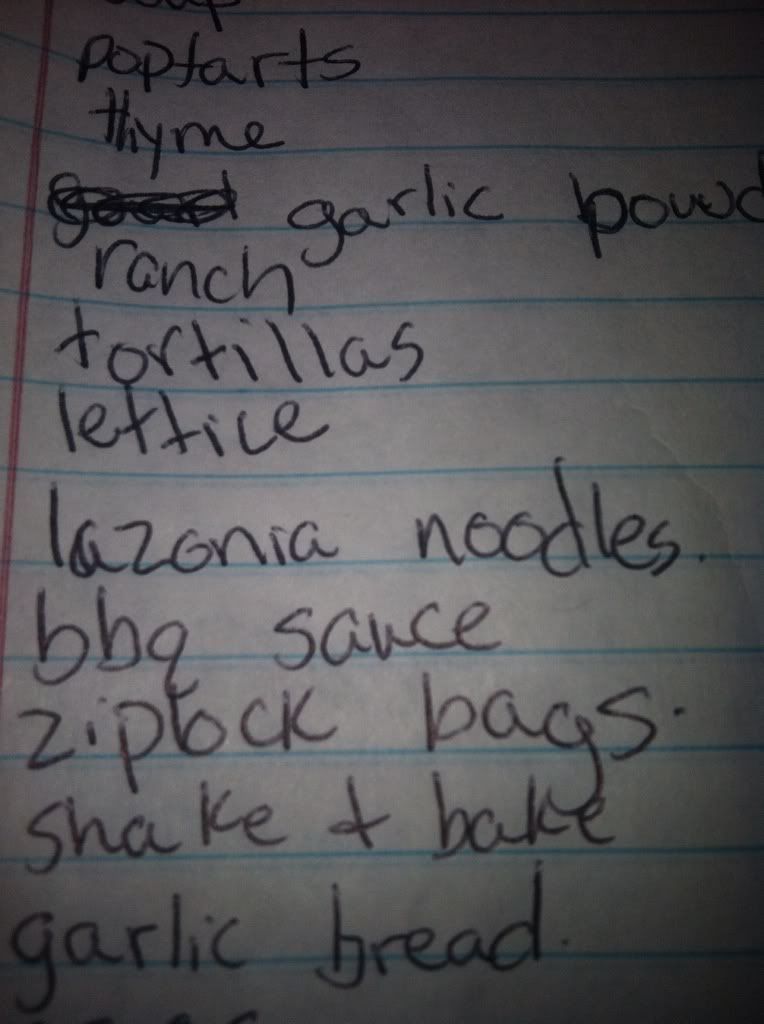 poptarts
thyme
garlic powd
ranch
tortillas
lettice
lazonia noodles.
bbq sauce
ziplock bags.
shake + bake
garlic bread.